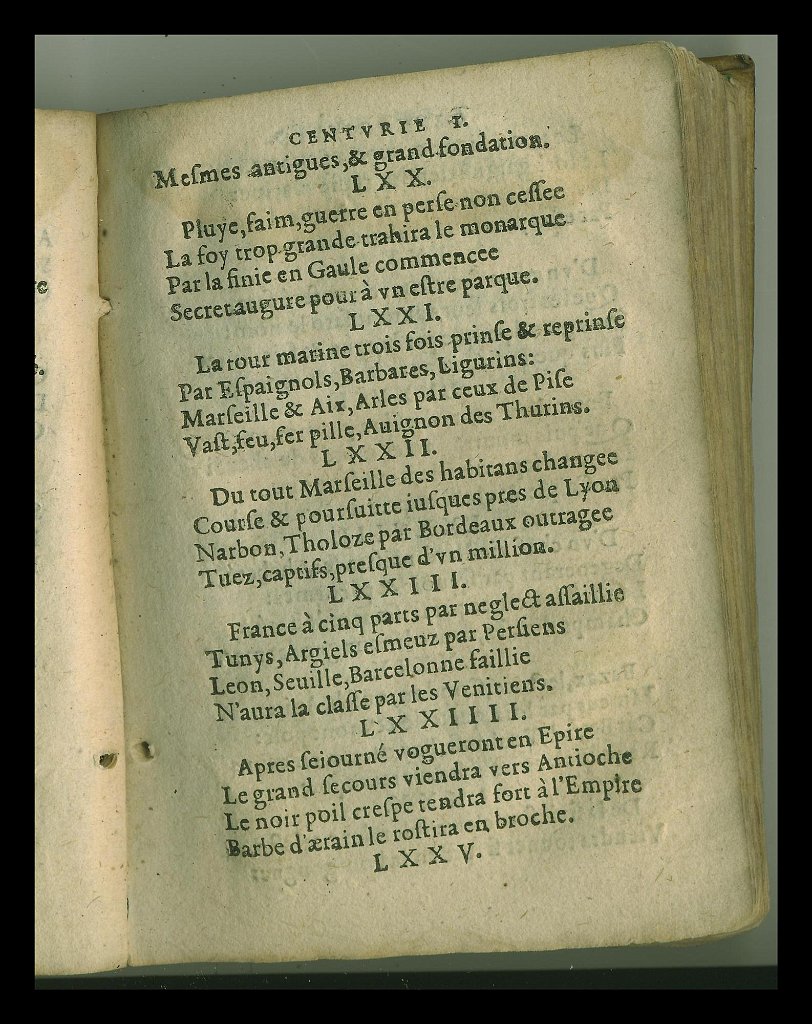 CENTVRIE I.
Meſmes antigues,& grand fondation.
LXX.
Pluye,faim,guerre en perſe non ceſſee
La foy trop grande trahira le monarque
Par la finie en Gaule commencee
Secret augure pour à vn eſtre parque.
LXXI.
La tour marine trois fois prinſe & reprinſe
Par Eſpaignols,Barbares,Ligurins:
Marſeille & Aix,Arles par ceux de Piſe
Vaſt,feu,fer pille,Auignon des Thurins.
LXXII.
Du tout Marſeille des habitans changee
Courſe & pourſuitte iuſques pres de Lyon
Narbon,Tholoze par Bordeaux outragee
Tuez,captifs,preſque d'vn million.
LXXIII.
France à cinq parts par neglect aſſaillie
Tunys,Argiels eſmeuz par Perſiens
Leon,Seuille,Barcelonne faillie
N'aura la claſſe par les Venitiens.
LXXIIII.
Apres ſeiourné vogueront en Epire
Le grand ſecours viendra vers Antioche
Le noir poil creſpe tendra fort à l'Empire
Barbe d'ærain le roſtira en broche.
LXXV.